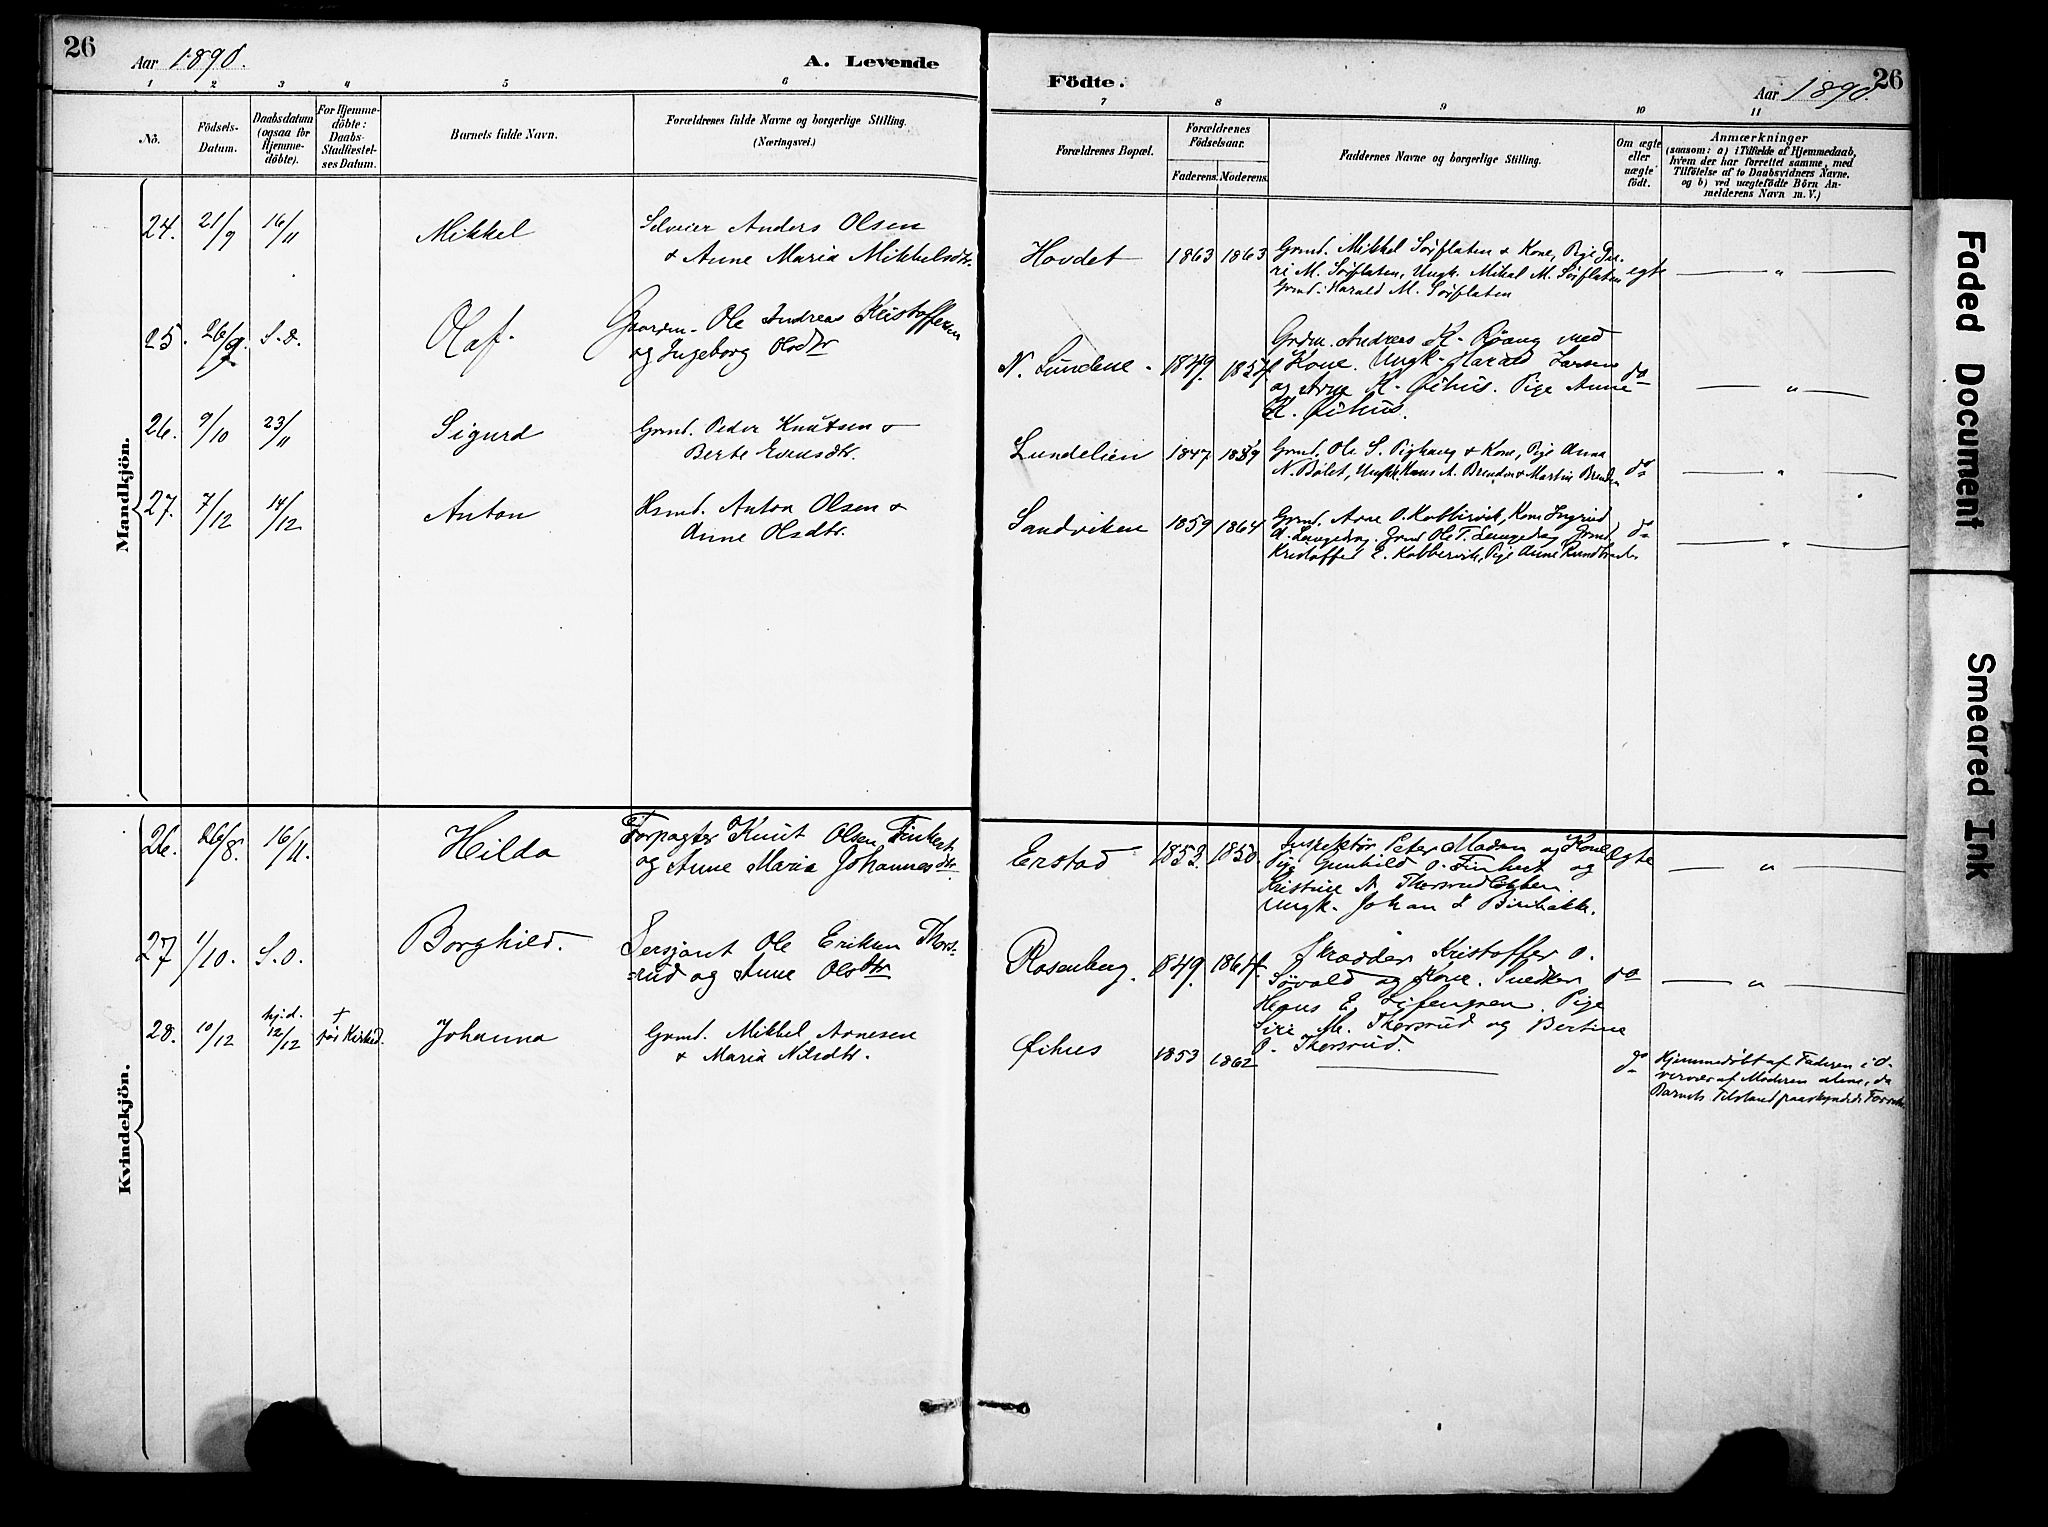 26
Aar 1890.
A. Levende
1 2 3 4 5 6
No.
Födsels-Datum.
Daabsdatum (ogsaa for Hjemme-döbte).
For Hjemme-döbte: Daabs-Stadfæstel-ses Datum.
Barnets fulde Navn.
Forældrenes fulde Navne og borgerlige Stilling.
(Næringsvei.)
Mandkjön.
24. 21/9 16/11 Mikkel
Selveier Anders Olsen
& Anne Maria Mikkelsdtr.
25. 26/9 S.d. Olaf.
Gaardm. Ole Andreas Kristoffersen
og Ingeborg Olsdtr
26. 9/10 23/11 Sigurd
Grmd. Peder Knutsen &
Berte Evensdtr.
27. 7/12 14/12 Anton
Hsmd. Anton Olsen &
Anne Olsdtr.
Kvindekjön.
26. 26/8. 16/11. Hilda
Forpagter Knut Olsen Finhert
og Anne Maria Johannesdtr.
27 1/10. S.d. Borghild.
Sersjant Ole Eriksen Thors-
rud og Anne Olsdtr
28. 10/12 hjd. 12/12 † før Kirked. Johanna
Grmd. Mikkel Arnesen
& Maria Nilsdtr.
Födte.
Aar 1890.
26
7 8 9 10 11
Forældrenes Bopæl.
Forældrenes Födselsaar.
Faderens. Moderens.
Faddernes Navne og borgerlige Stilling.
Om ægte eller uægte födt.
Anmærkninger
(saasom: a) i Tilfælde af Hjemmedaab,
hvem der har forrettet samme, med
Tilföielse af to Daabsvidners Navne.
og b) ved uægtefödte Börn An-
melderens Navn m. V.)
Hovdet 1863 1863
Grmd. Mikkel Sørflaten & Kone, Pige Gu-
ri M. Sørflaten, Ungk. Mikal M. Sørflaten
Grmd. Harald M. Sørflaten
egte "
N. Lundene. 1849. 1854
Grdm. Andreas K. Røang med
Kone. Ungk. Harald Larsen
og Arne K. Øihus. Pige Anne
K. Øihus.
do "
Lundelien 1847
Grmd. Ole S. & Kone, Pige Anna
N. Bølet, Ungk. Hans A. Brenden & Martin Brenden
do "
Sandviken 1859 1864
Grmd. Arne O. Kobbervik, Kone Ingrid
A. Langedrag. Grmd Ole T. Langedrag Grmd.
Kristoffer E. Kobbervik, Pige Anne
do "
Erstad 1853. 1850.
Inspektør Peter Madsen og Kone
Pige Gunhild O. Finhert og
Kristine N. Thorsrud
Ungk. Johan
Ægte "
Rosenberg. 1849. 1864.
Skrædder Kristoffer O.
Søvold og Kone. Snedker
Hans E. Pige
Siri M. Thorsrud og Bertine
O. Thorsrud.
do "
Øihus 1853 1862
do
Hjemmedøbt af Faderen i O-
vervær af Moderen alene, da
Barnets Tilstand paaskyndede Forretn.
Faded Document
Smeared Ink